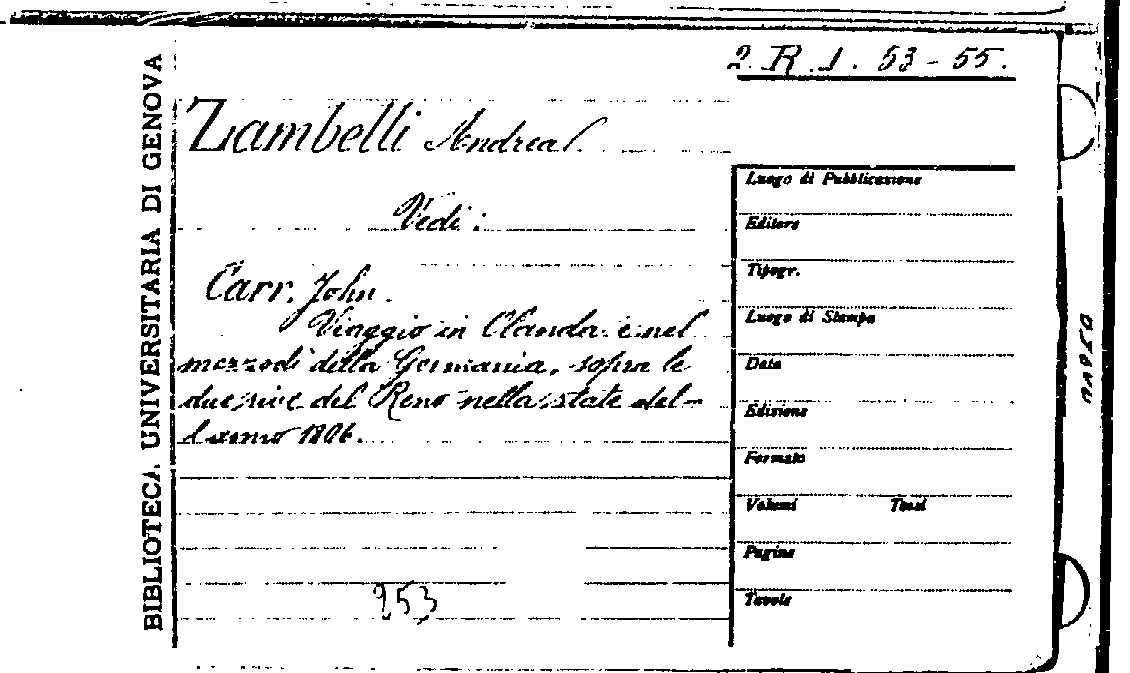 2. R. 1. 53-55.
BIBLIOTECA UNIVERSITARIA DI GENOVA
Zambelli Andrea.
Vedi:
Carr. John.
Viaggio in Olanda e nel
mezzodi della Germania, sopra le
due rive del Reno nella state del-
l'anno 1806.
253
Luogo di Pubblicazione
Editore
Tipogr.
Luogo di Stampa
Data
Edizione
Formato
Volumi Tomi
Pagine
Tavole